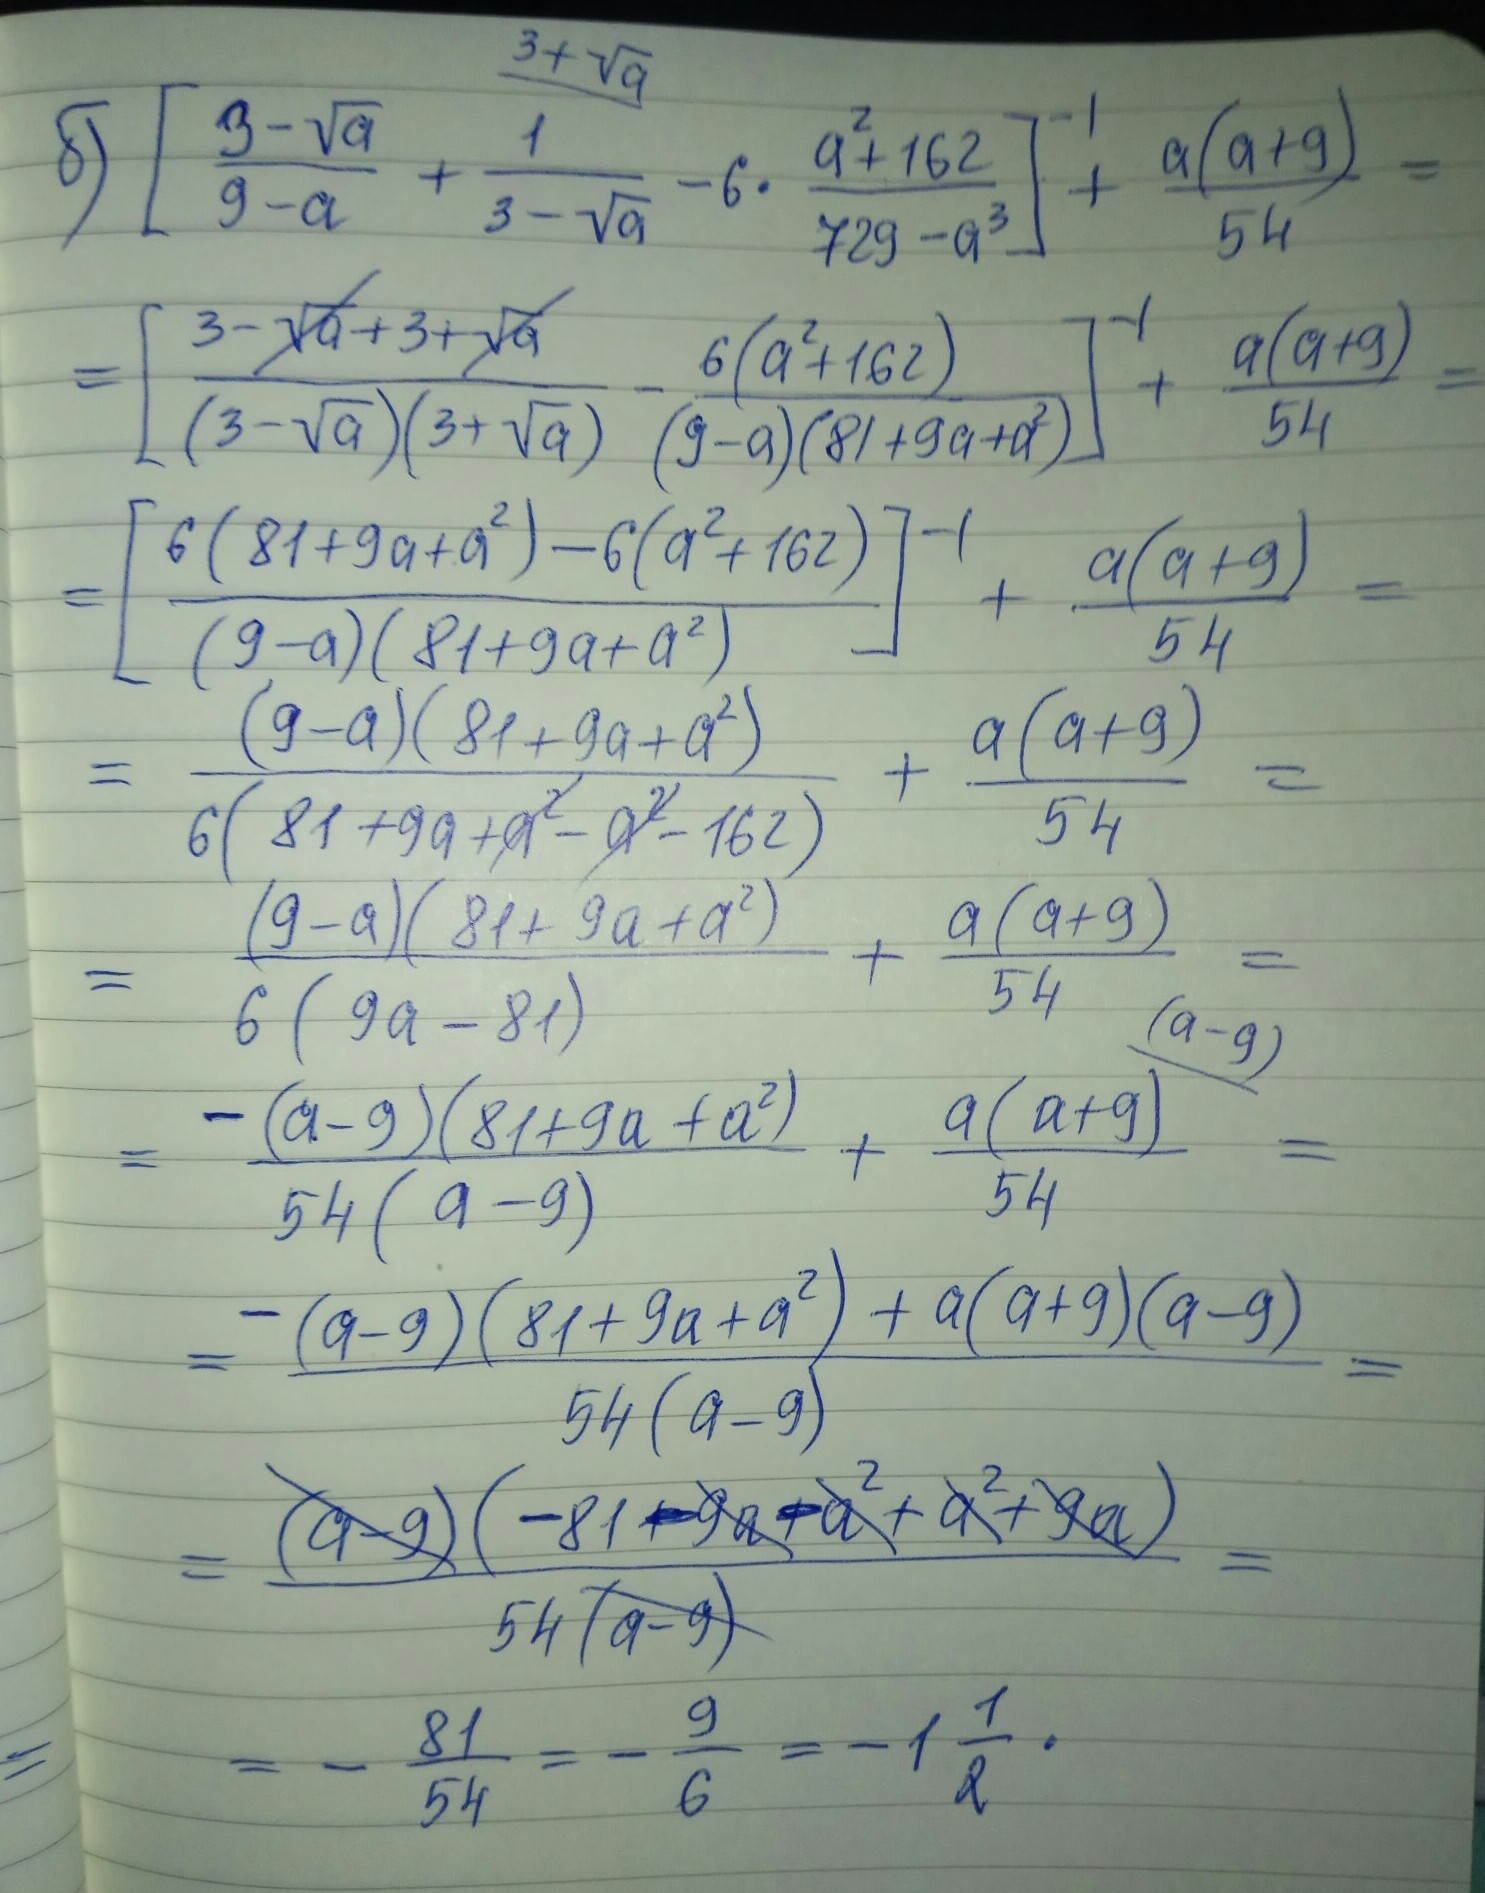 3+√a
б) [ (3-√a)/(9-a) + 1/(3-√a) - 6· (a²+162)/(729-a³) ]⁻¹ + a(a+9)/54 =
= [ (3-√a+3+√a)/((3-√a)(3+√a)) - 6(a²+162)/((9-a)(81+9a+a²)) ]⁻¹ + a(a+9)/54 =
= [ (6(81+9a+a²)-6(a²+162))/((9-a)(81+9a+a²)) ]⁻¹ + a(a+9)/54 =
= (9-a)(81+9a+a²)/(6(81+9a+a²-a²-162)) + a(a+9)/54 =
= (9-a)(81+9a+a²)/(6(9a-81)) + a(a+9)/54 =
(a-9)
= -(a-9)(81+9a+a²)/(54(a-9)) + a(a+9)/54 =
= (-(a-9)(81+9a+a²)+a(a+9)(a-9))/(54(a-9)) =
= (a-9)(-81-9a-a²+a²+9a)/(54(a-9)) =
= = - 81/54 = - 9/6 = -1 1/2 .